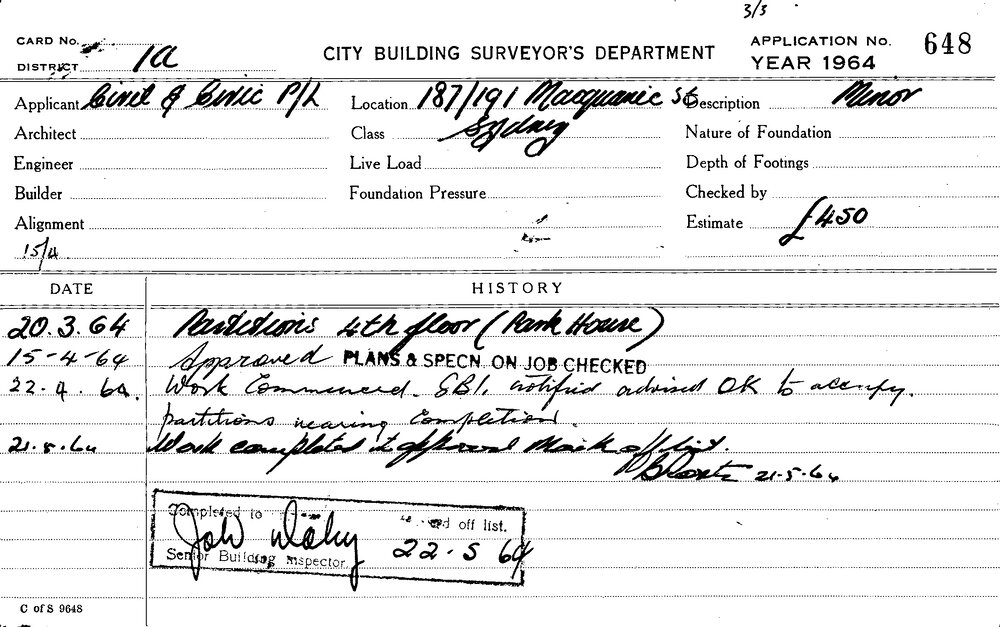 3/3
CARD No.
DISTRICT 1a
CITY BUILDING SURVEYOR'S DEPARTMENT
APPLICATION No. 648
YEAR 1964
Applicant Civil & Civic P/L Location 187/191 Macquarie St Description Minor
Architect Class Sydney Nature of Foundation
Engineer Live Load Depth of Footings
Builder Foundation Pressure Checked by
Alignment Estimate £450
15/4
DATE HISTORY
20.3.64 Partitions 4th floor (Park House)
15-4-64 Approved PLANS & SPECN. ON JOB CHECKED
22.4.64. Work Commenced. SBI. notified advised OK to occupy.
partitions nearing completion.
21.5.64 Work completed approved Mark off list.
21-5-64
Completed to off list.
22-5 64
Senior Building Inspector.
C of S 9648